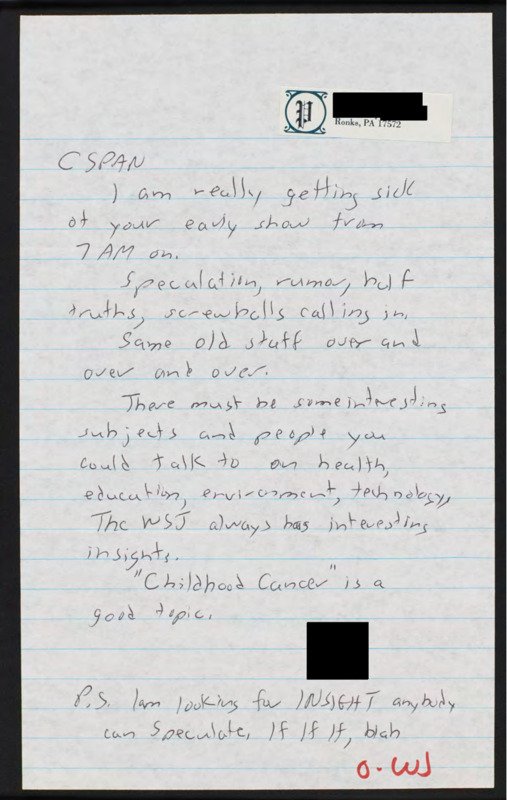 P
Ronks, PA 17572
CSPAN
I am really getting sick
of your early show from
7 AM on.
Speculation, rumor, half
truths, screwballs calling in.
Same old stuff over and
over and over.
There must be some interesting
subjects and people you
could talk to on health,
education, environment, technology,
The WSJ always has interesting
insights.
"Childhood Cancer" is a
good topic.
P.S. I am looking for INSIGHT anybody
can speculate, If If If, blah